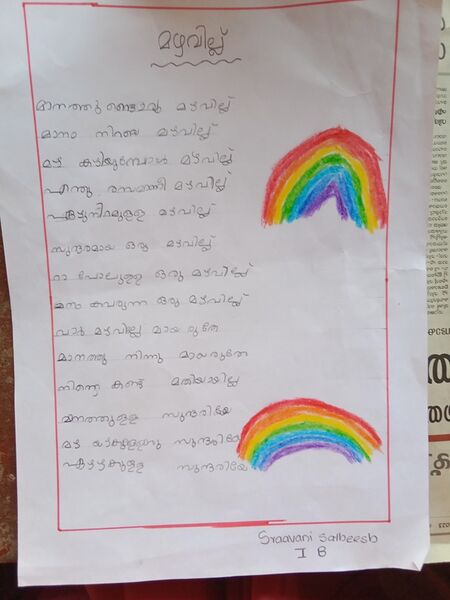 മഴവില്ല്
മാനത്തുണ്ടൊരു മഴവില്ല്
മാനം നിറഞ്ഞ മഴവില്ല്
മഴ കഴിയുമ്പോൾ മഴവില്ല്
എന്തു രസമാണീ മഴവില്ല്
ഏഴുനിറമുളള മഴവില്ല്
സുന്ദരമായ ഒരു മഴവില്ല്
റാ പോലുള്ള ഒരു മഴവില്ല്
മനം കവരുന്ന ഒരു മഴവില്ല്
വാർ മഴവില്ലേ മായരുതേ
മാനത്തു നിന്നു മായരുതേ
നിന്നെ കണ്ട് മതിയായില്ല
മാനത്തുളള സുന്ദരിയേ
മഴ സുന്ദരിയേ
ഏഴഴകുളള സുന്ദരിയേ
Sraavani Salbeesh
I B